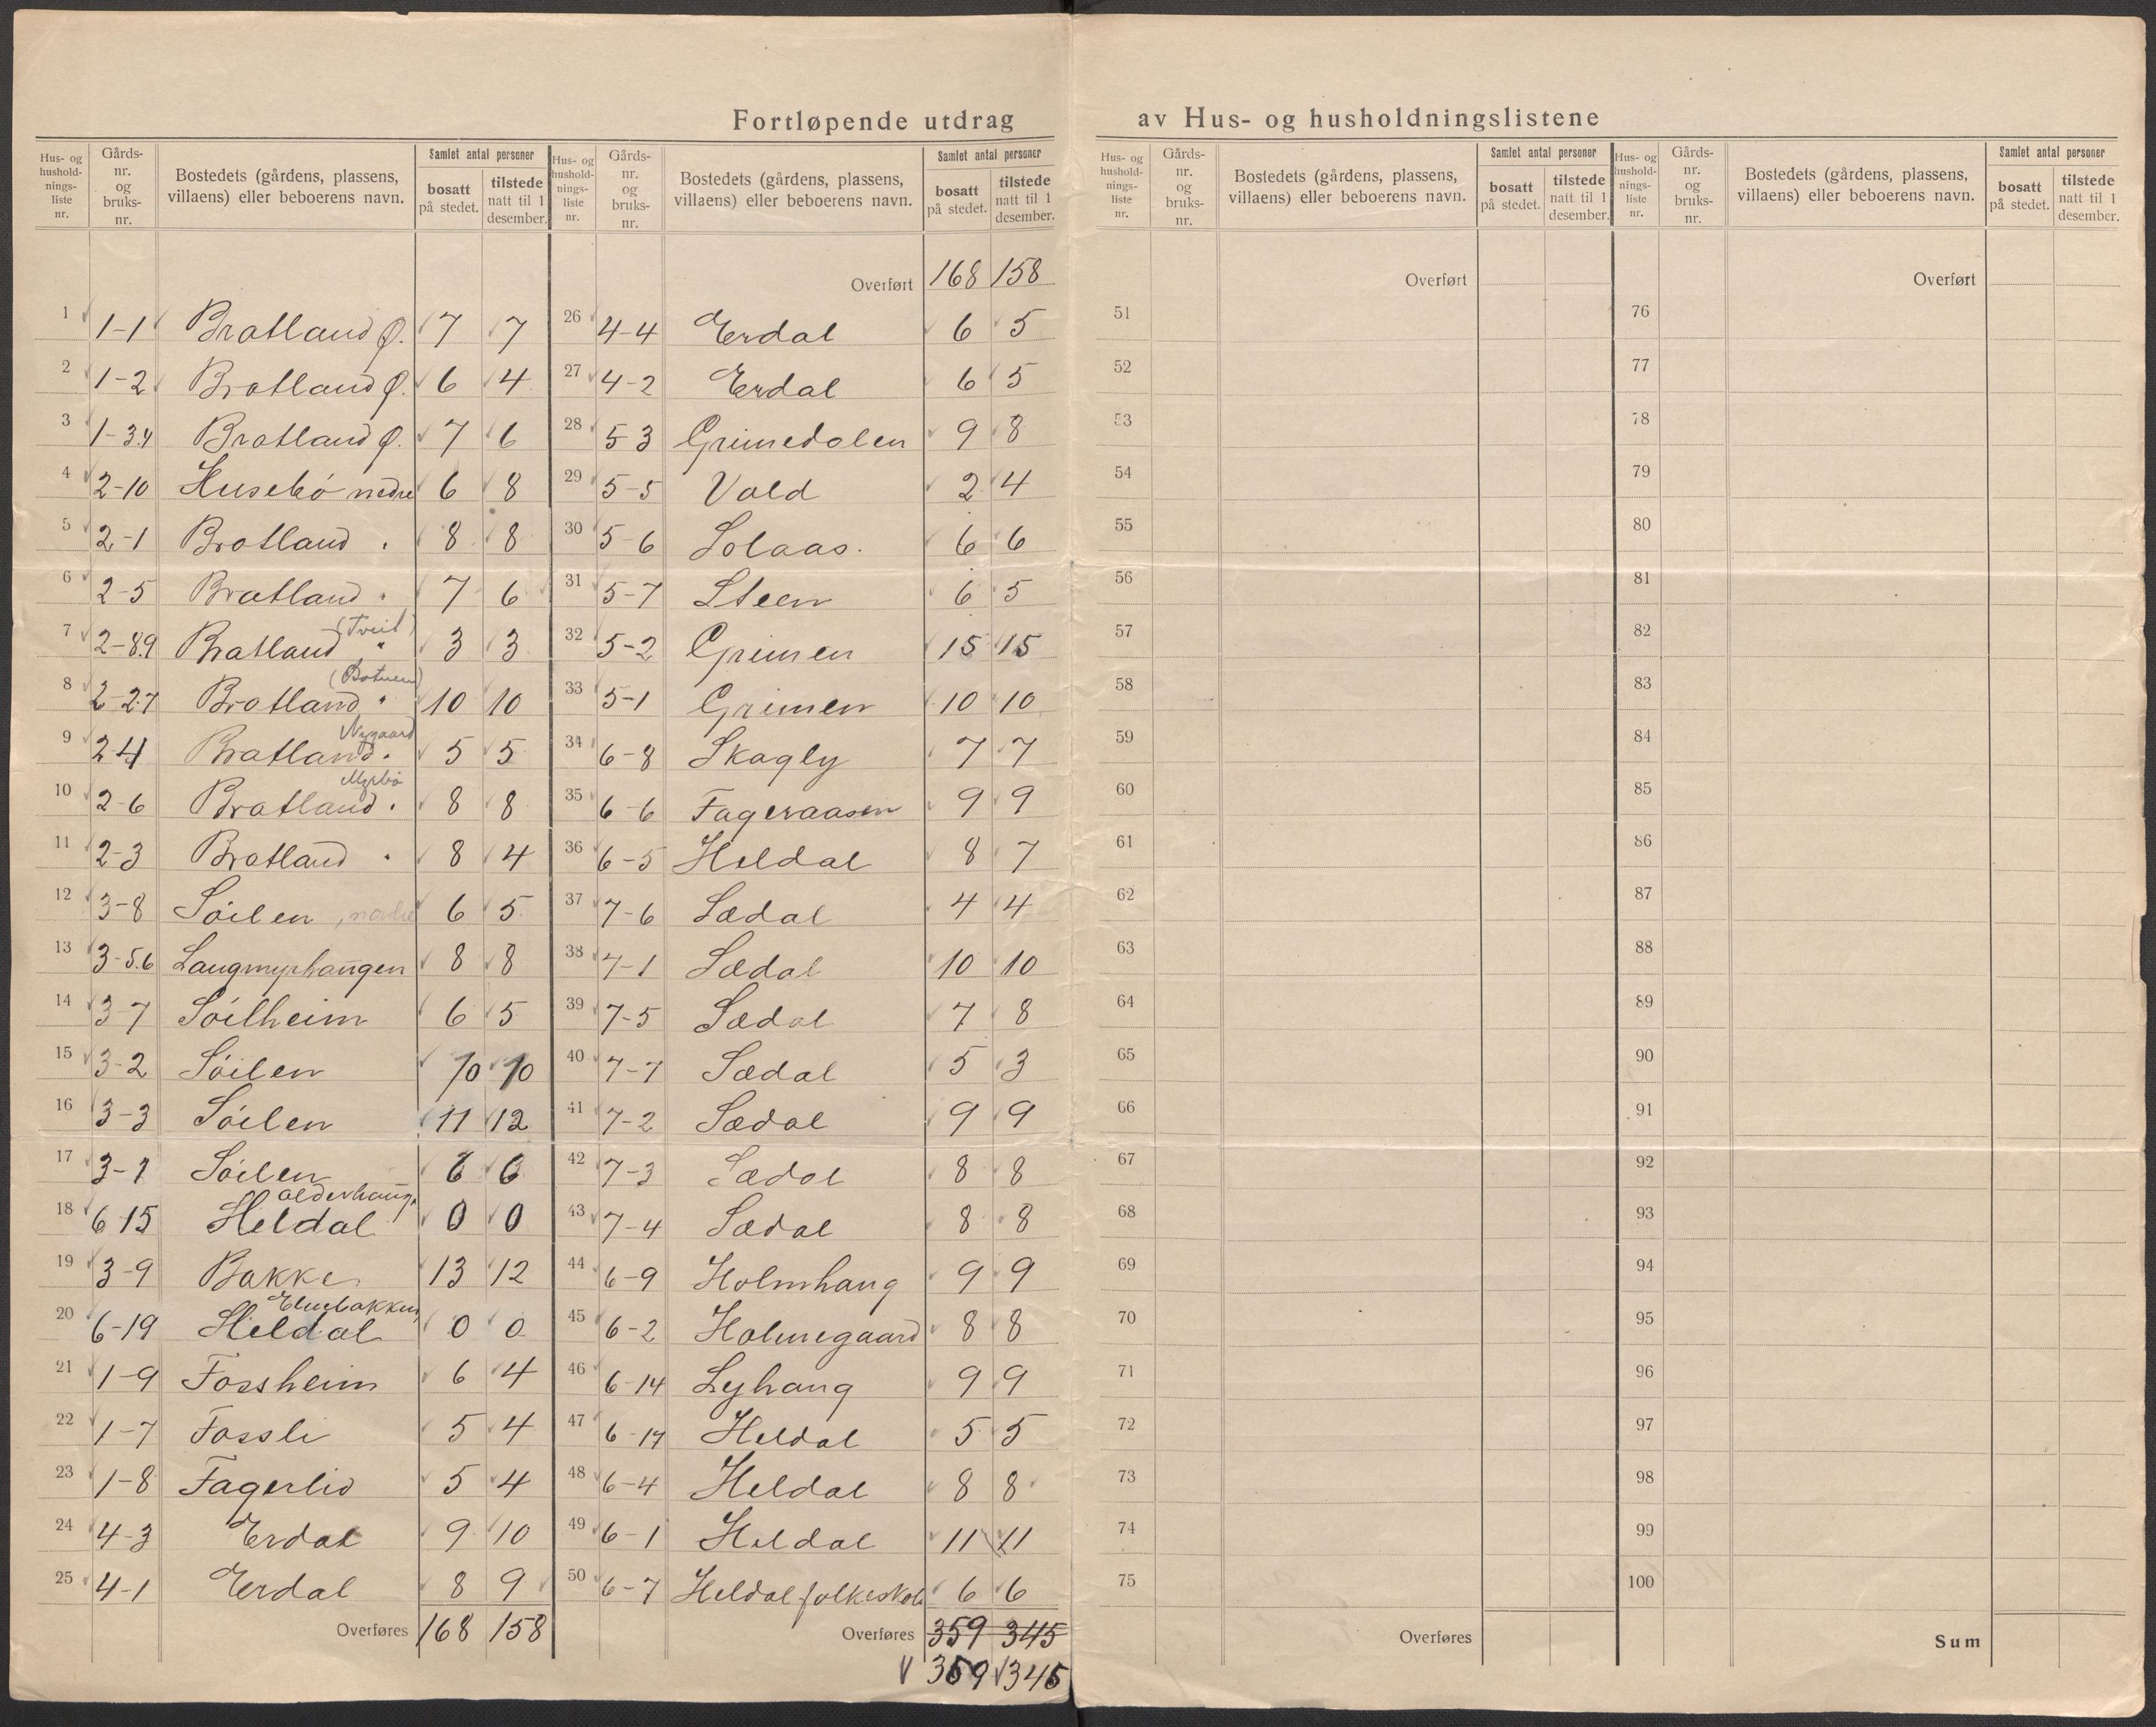 Fortløpende utdrag av Hus- og husholdningslistene
Hus- og hushold-nings-liste nr. Gårds-nr. og bruks-nr. Bostedets (gårdens, plassens, villaens) eller beboerens navn. Samlet antal personer bosatt på stedet. tilstede natt til 1 desember.
1 1-1 Bratland Ø. 7 7
2 1-2 Bratland Ø. 6 4
3 1-3.4 Bratland Ø. 7 6
4 2-10 Husebø nedre 6 8
5 2-1 Bratland " 8 8
6 2-5 Bratland " 7 6
(Tveit)
7 2-8.9 Bratland " 3 3
(Botnen)
8 2-2.7 Bratland " 10 10
Nygaard
9 2-4 Bratland " 5 5
Myrbø
10 2-6 Bratland " 8 8
11 2-3 Bratland " 8 4
12 3-8 Söilen, 6 5
13 3-5.6 Langmyrhaugen 8 8
14 3-7 Söilheim 6 5
15 3-2 Söilen 10 10
16 3-3 Söilen 11 12
17 3-1 Söilen 6 6
olderhaug.
18 6-15 Heldal 0 0
19 3-9 Bakke 13 12
Elvebakken
20 6-19 Heldal 0 0
21 1-9 Fossheim 6 4
22 1-7 Fossli 5 4
23 1-8 Fagerlid 5 4
24 4-3 Erdal 9 10
25 4-1 Erdal 8 9
Overføres 168 158
Hus- og hushold-nings-liste nr. Gårds-nr. og bruks-nr. Bostedets (gårdens, plassens, villaens) eller beboerens navn. Samlet antal personer bosatt på stedet. tilstede natt til 1 desember.
Overført 168 158
26 4-4 Erdal 6 5
27 4-2 Erdal 6 5
28 5-3 Grimedalen 9 8
29 5-5 Vold 2 4
30 5-6 Solaas. 6 6
31 5-7 Steen 6 5
32 5-2 Grimen 15 15
33 5-1 Grimen 10 10
34 6-8 Skagly 7 7
35 6-6 Fageraasen 9 9
36 6-5 Heldal 8 7
37 7-6 Sædal 4 4
38 7-1 Sædal 10 10
39 7-5 Sædal 7 8
40 7-7 Sædal 5 3
41 7-2 Sædal 9 9
42 7-3 Sædal 8 8
43 7-4 Sædal 8 8
44 6-9 Holmhaug 9 9
45 6-2 Holmegaard 8 8
46 6-14 Lyhaug 9 9
47 6-17 Heldal 5 5
48 6-4 Heldal 8 8
49 6-1 Heldal 11 11
50 6-7 Heldal folkeskole 6 6
Overføres 359 345
359 345
Hus- og hushold-nings-liste nr. Gårds-nr. og bruks-nr. Bostedets (gårdens, plassens, villaens) eller beboerens navn. Samlet antal personer bosatt på stedet. tilstede natt til 1 desember.
Overført
51
52
53
54
55
56
57
58
59
60
61
62
63
64
65
66
67
68
69
70
71
72
73
74
75
Overføres
Hus- og hushold-nings-liste nr. Gårds-nr. og bruks-nr. Bostedets (gårdens, plassens, villaens) eller beboerens navn. Samlet antal personer bosatt på stedet. tilstede natt til 1 desember.
Overført
76
77
78
79
80
81
82
83
84
85
86
87
88
89
90
91
92
93
94
95
96
97
98
99
100
Sum